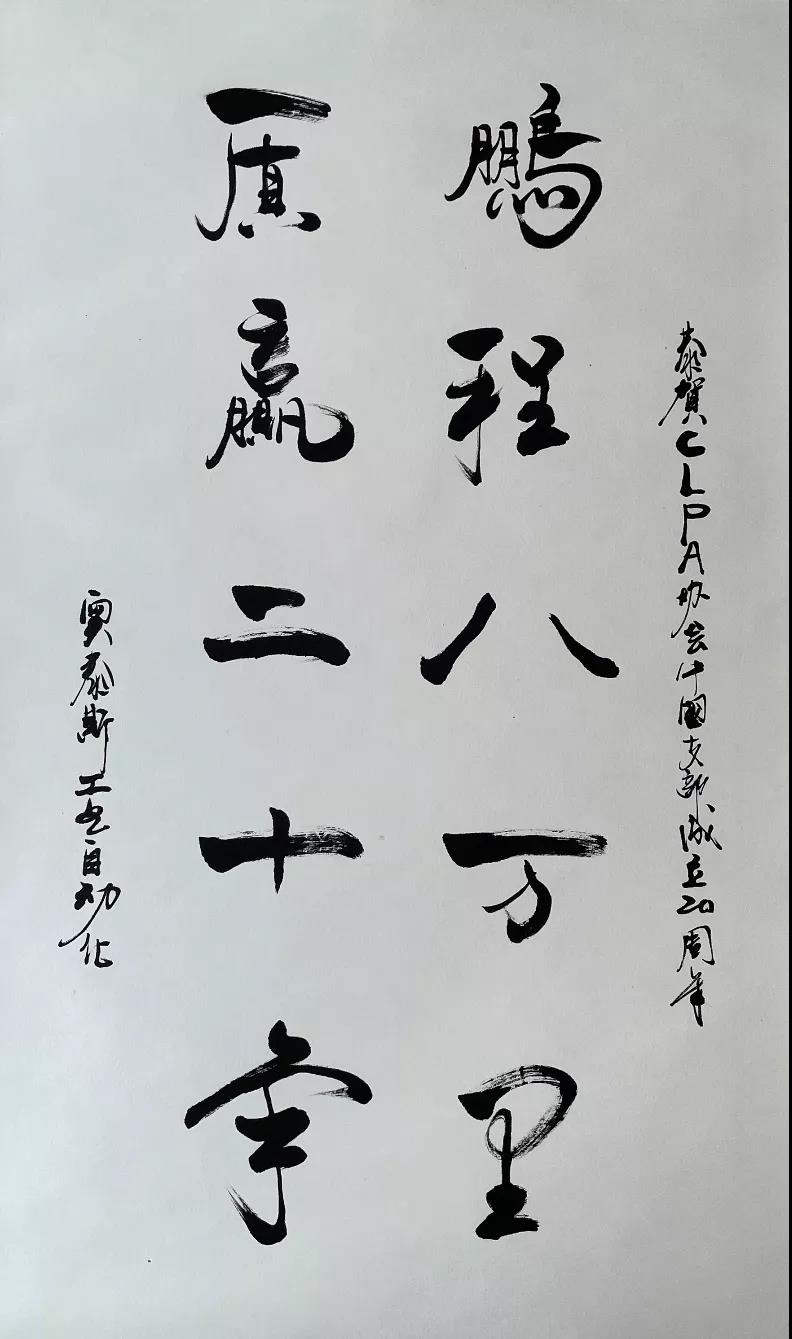 恭賀CLPA协会中國支部成立20周年
鵬程八万里
赢二十年
奥泰斯工业自动化